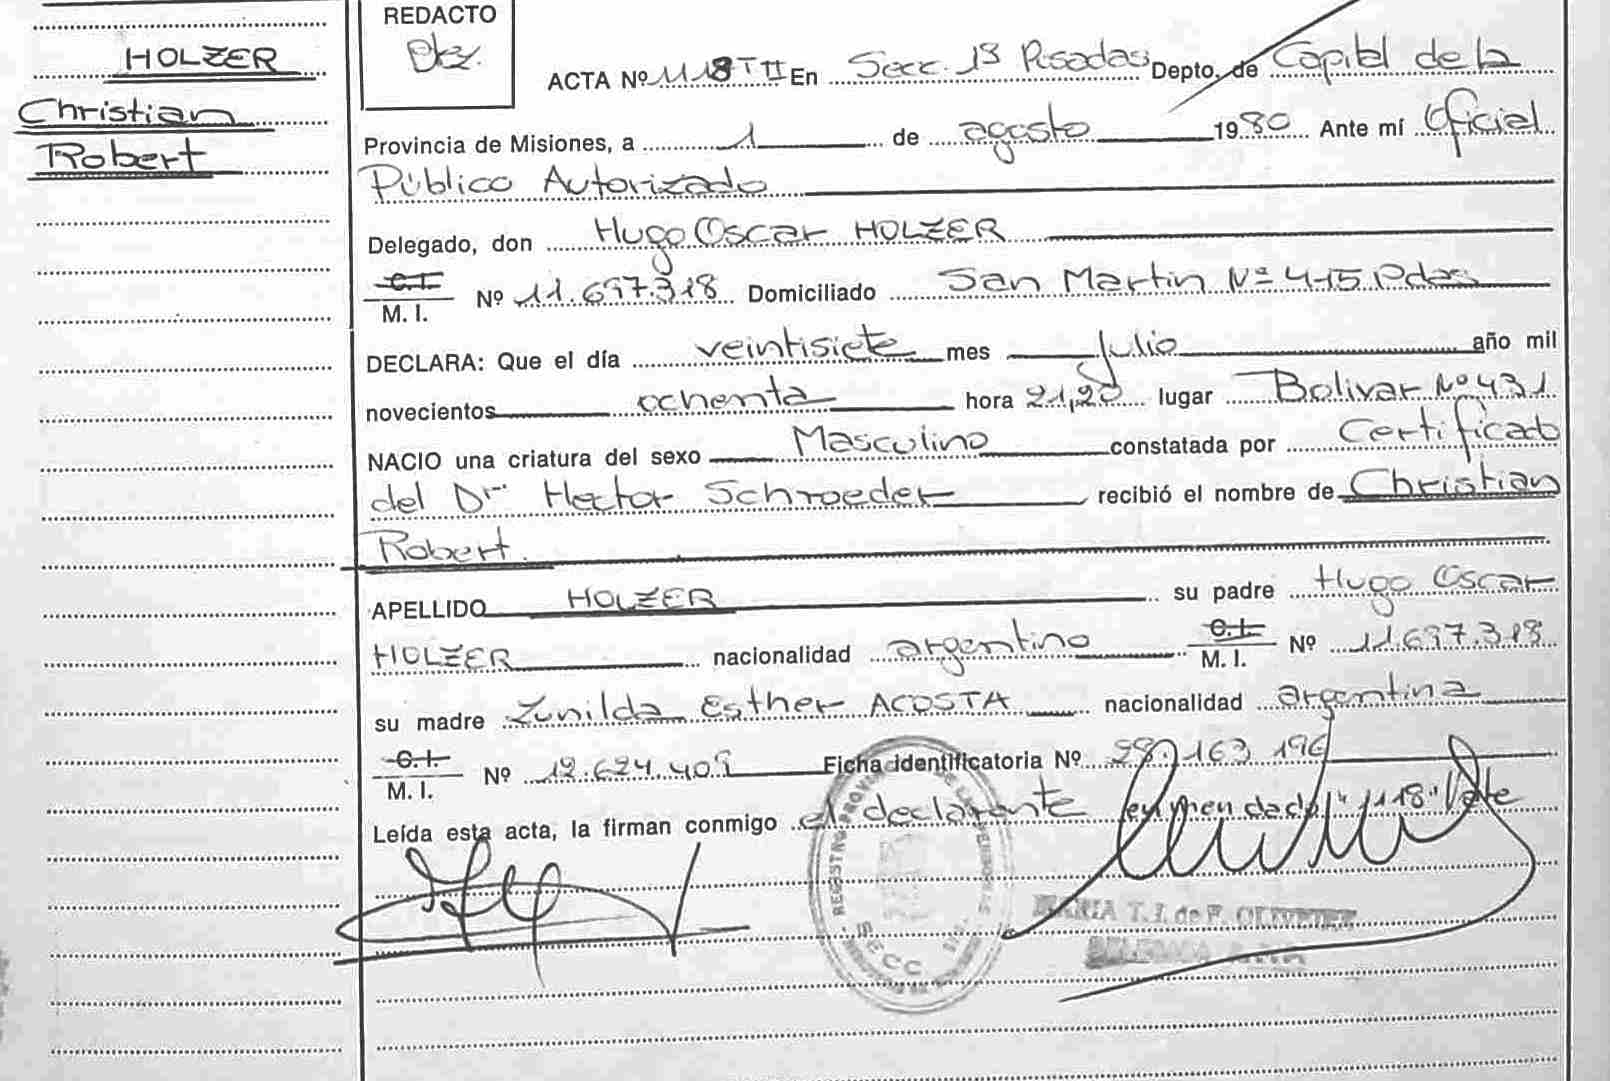 HOLZER
Christian
Robert
REDACTO
ACTA Nº 1118 T II En Secc. 1ª Posadas Depto. de Capital de la
Provincia de Misiones, a 1 de agosto 1980 Ante mí Oficial
Público Autorizado
Delegado, don Hugo Oscar HOLZER
C.I.
M. I. Nº 11.697.318 Domiciliado San Martin Nº 415 Pdas
DECLARA: Que el día veintisiete mes Julio año mil
novecientos ochenta hora 21,20 lugar Bolivar Nº 431
NACIO una criatura del sexo Masculino constatada por Certificado
del Dr. Hector Schroeder recibió el nombre de Christian
Robert.
APELLIDO HOLZER su padre Hugo Oscar
HOLZER nacionalidad argentino C.I. M. I. Nº 11.697.318
su madre Zunilda Esther ACOSTA nacionalidad argentina
C.I.
M. I. Nº 12.624.409 Ficha identificatoria Nº 28.163.196
Leída esta acta, la firman conmigo el declarante enmendado "1118" Vale
REGISTRO PROV
SECC.
MARIA T. J. de F.
DELEGADA